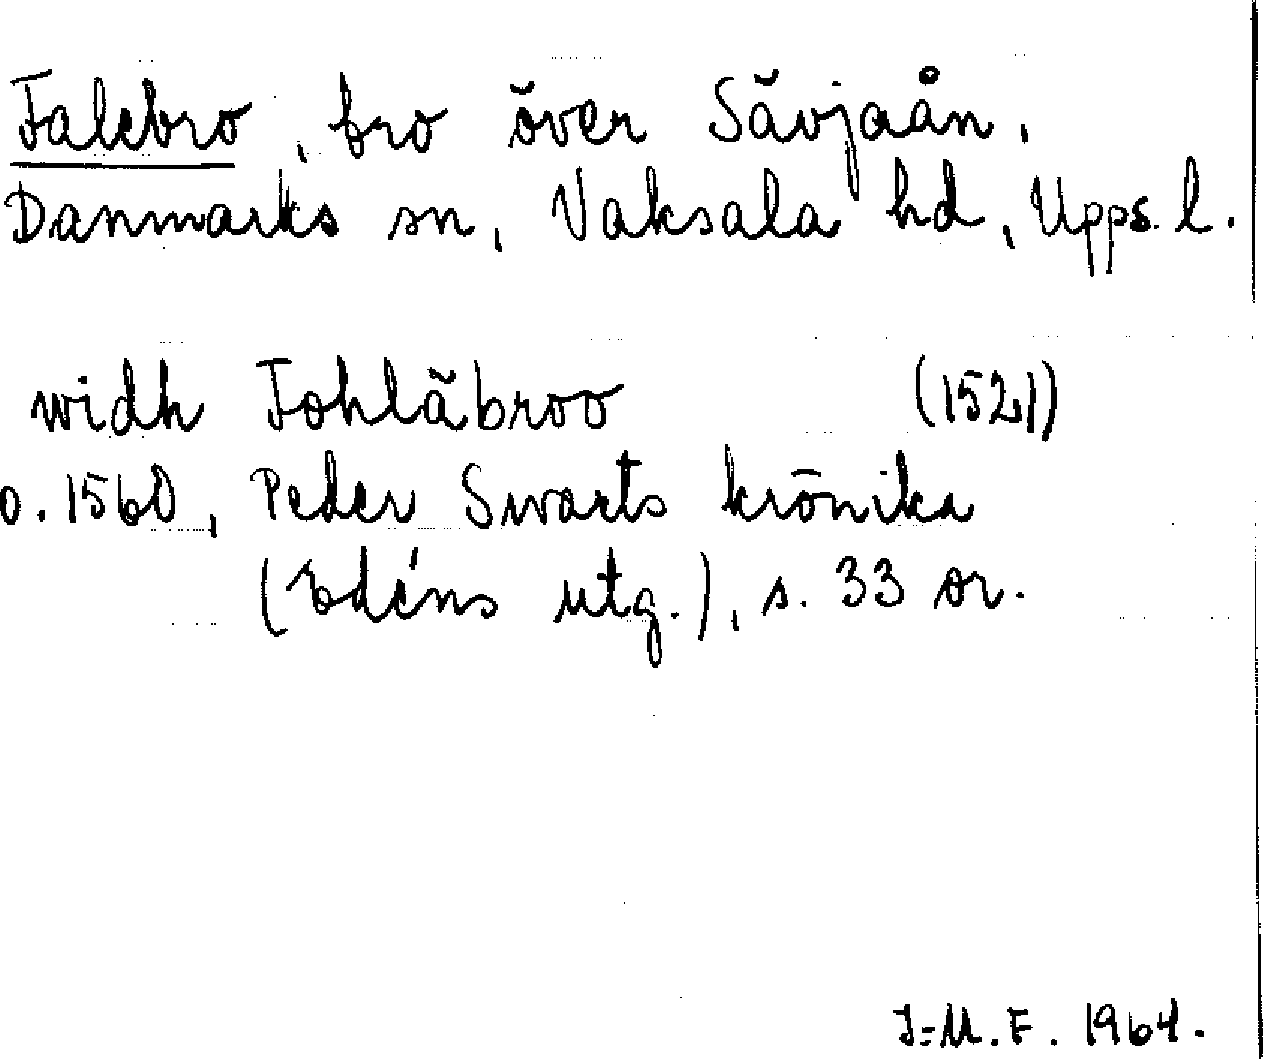 Falebro, bro över Sävjaån,
Danmarks sn, Vaksala hd, Upps. l.
widh Fohläbroo (1521)
o. 1560, Peder Swarts krönika
(Edéns utg.), s. 33 or.
J-M. F. 1964.